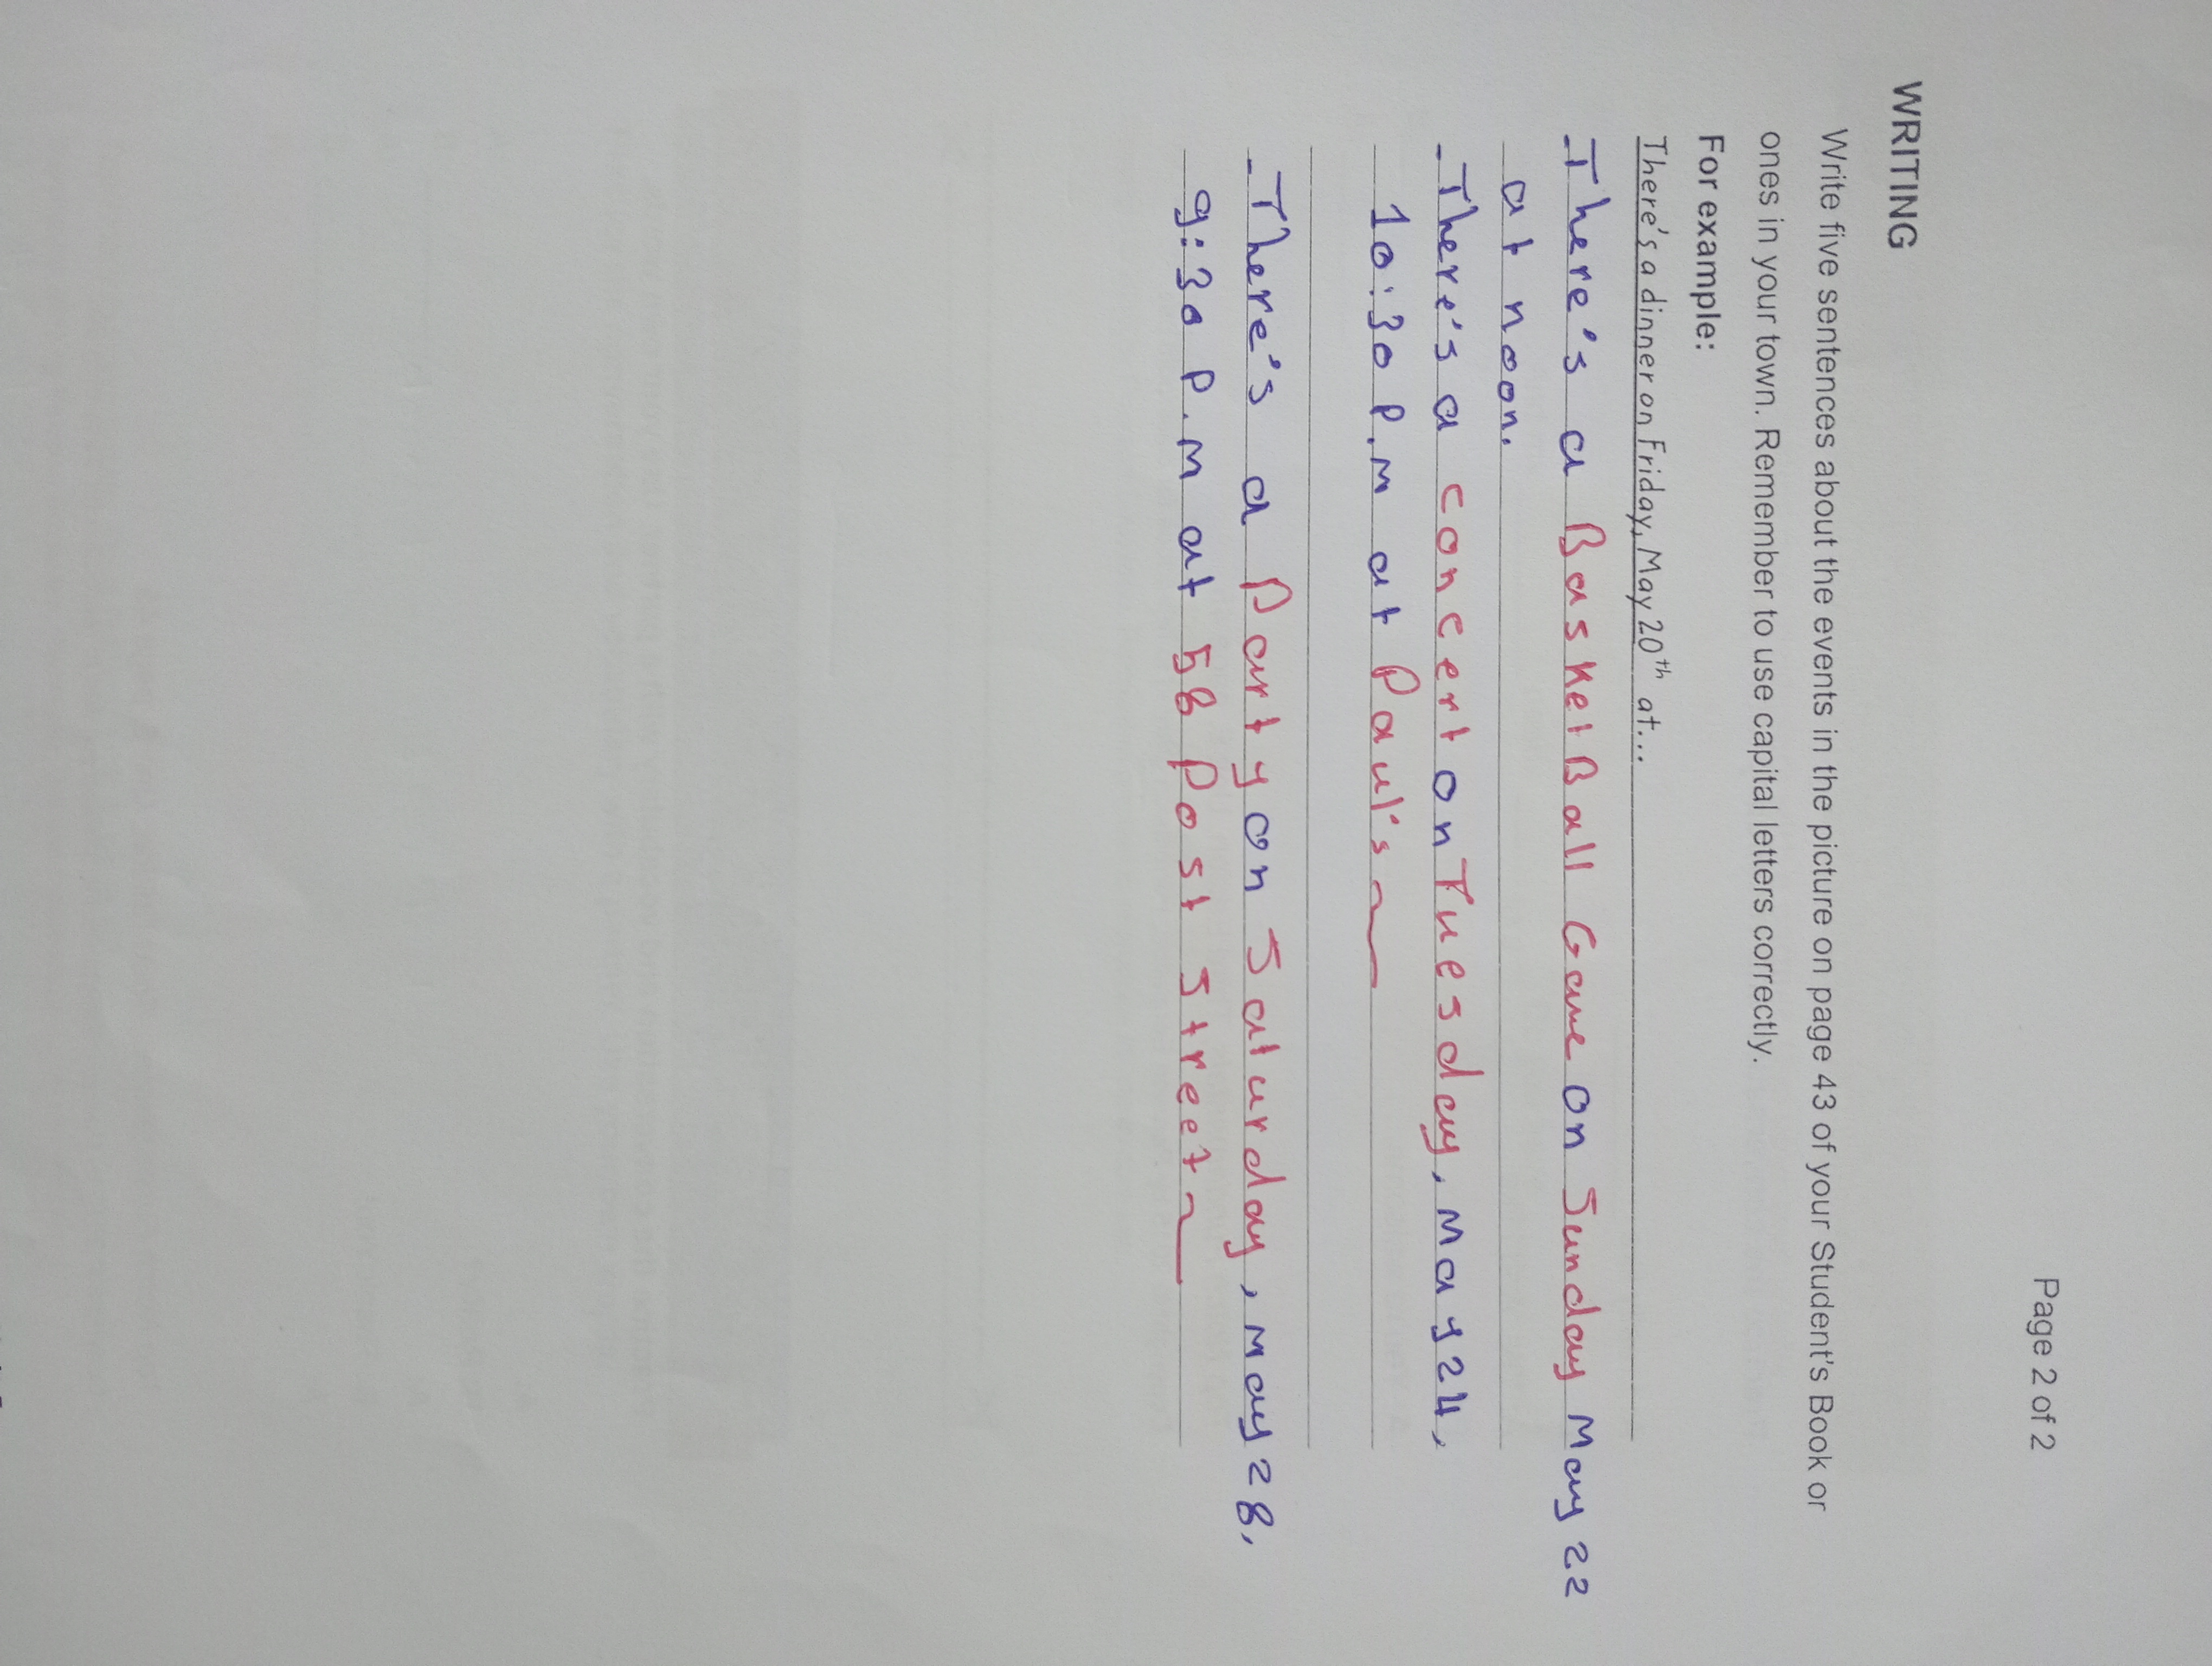 Page 2 of 2
WRITING
Write five sentences about the events in the picture on page 43 of your Student's Book or
ones in your town. Remember to use capital letters correctly.
For example:
There's a dinner on Friday, May 20th at...
- There's a BasketBall Game on Sunday May 22
at noon.
- There's a concert on Tuesday, May 24,
10:30 P.M at Paul's
- There's a Party on Saturday, May 28,
9:30 P.M at 58 Post Street